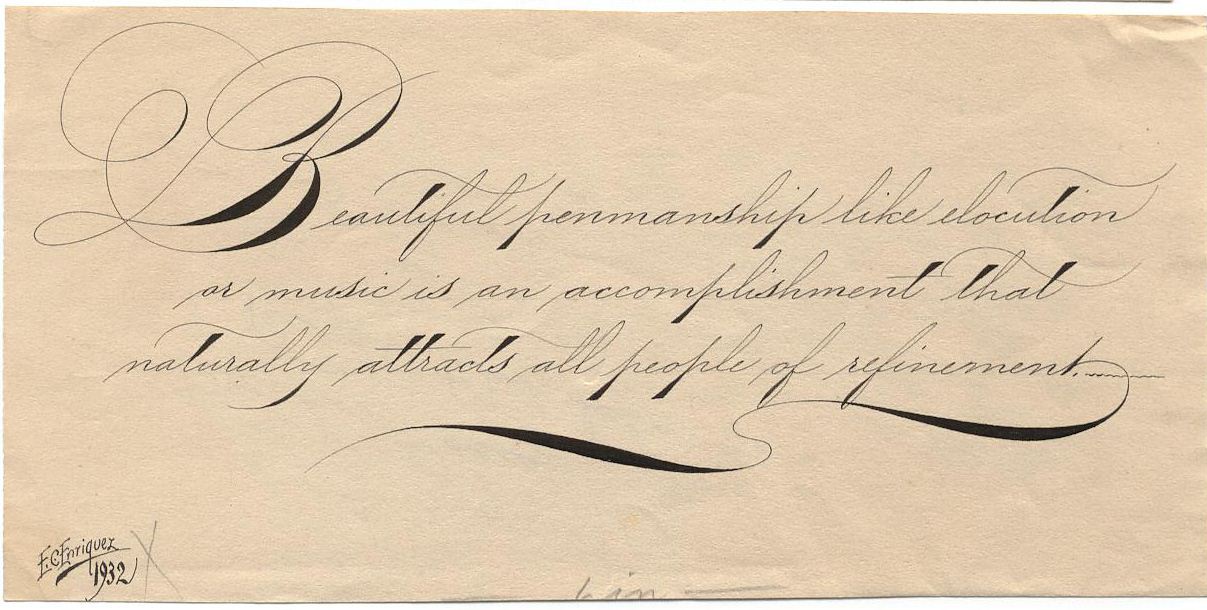 Beautiful penmanship like elocution
or music is an accomplishment that
naturally attracts all people of refinement.
E.C. Enriquez
1932